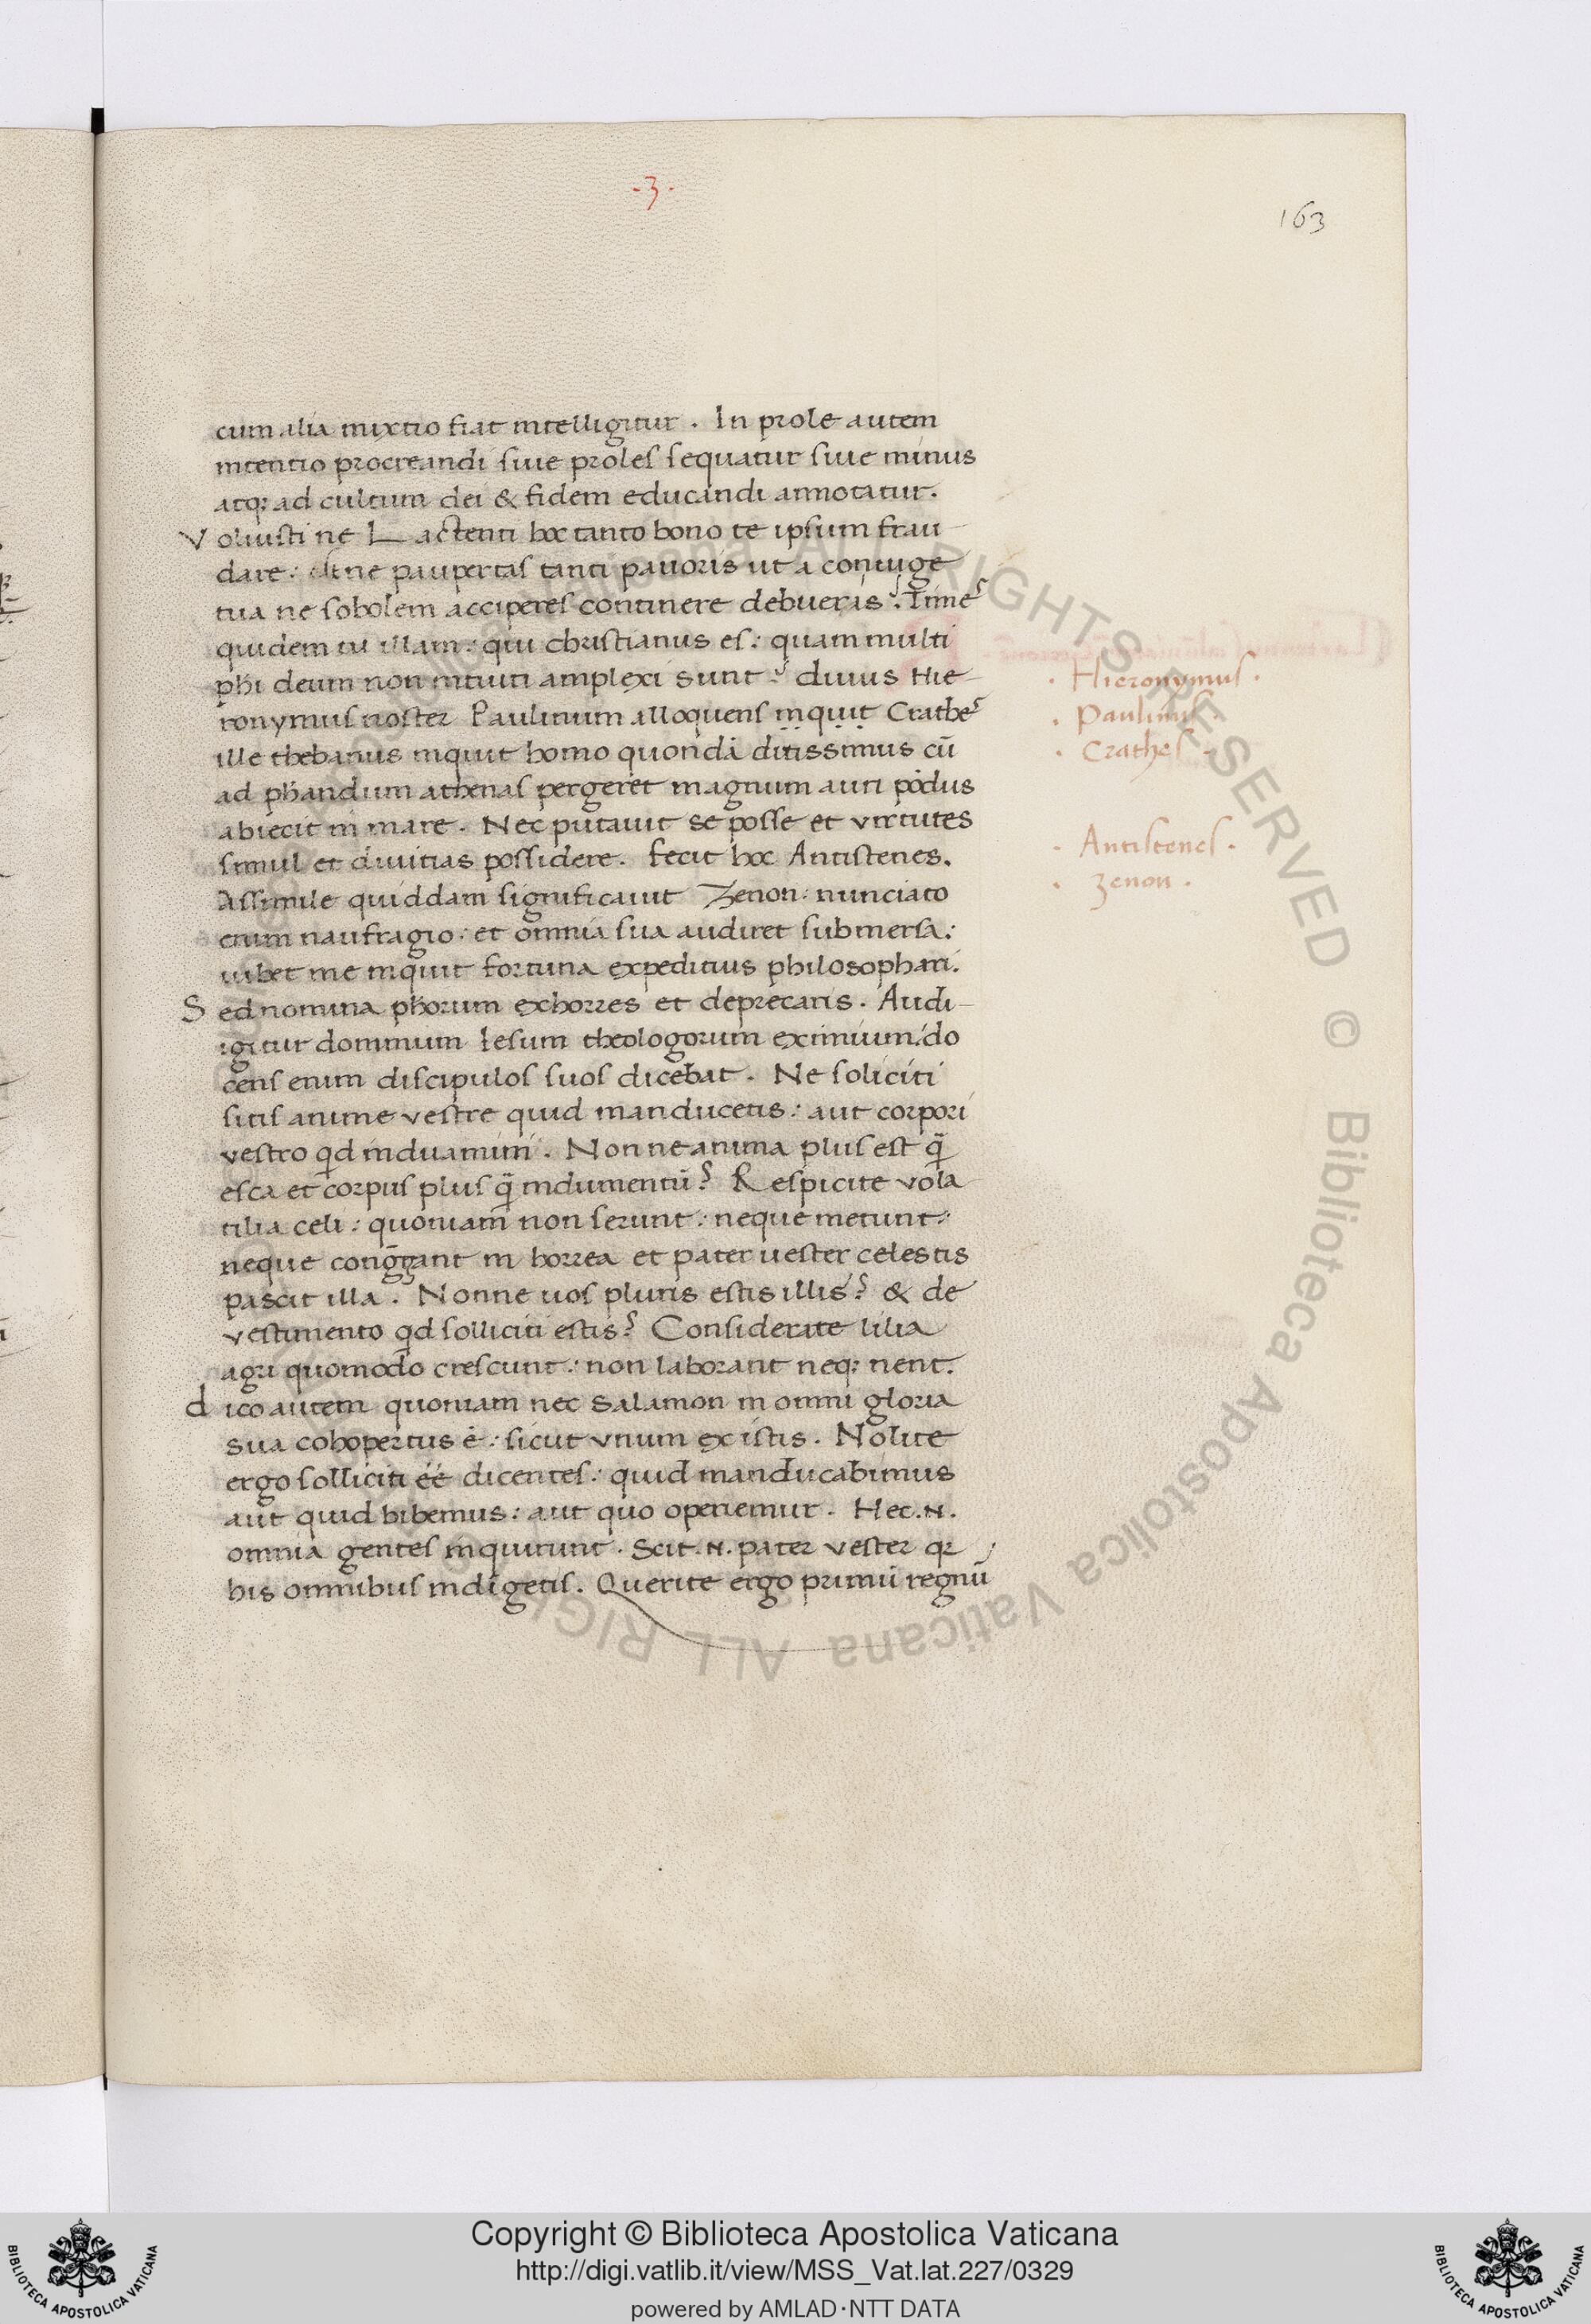 -3-
163
cum alia mixtio fiat intelligitur. In prole autem
intentio procreandi siue proles sequatur siue minus
atq; ad cultum dei & fidem educandi annotatur.
Voluisti ne Lactenti hoc tanto bono te ipsum frau
dare: paupertas tanti pauoris ut a coniuge
tua ne sobolem acciperes continere debueras? Times
quidem tu illam: qui christianus es: quam multi
phi deum non intuiti amplexi sunt? diuus Hie
ronymus noster Paulinum alloquens inquit Crathes
ille thebanus inquit homo quondā ditissimus cū
ad phandum athenas pergeret magnum auri pōdus
abiecit in mare. Nec putauit se posse et virtutes
simul et diuitias possidere. fecit hoc Antistenes.
Assimile quiddam significauit Zenon: nunciato
enim naufragio: et omnia sua audiret submersa:
iubet me inquit fortuna expeditius philosophari.
Sed nomina phorum exhorres et deprecaris. Audi
igitur dominum Iesum theologorum eximium: do
cens enim discipulos suos dicebat. Ne soliciti
sitis anime vestre quid manducetis: aut corpori
vestro qd induamini. Nonne anima plus est q̄
esca et corpus plus q̄ indumentū? Respicite vola
tilia celi: quoniam non serunt: neque metunt:
neque congḡant in horrea et pater uester celestis
pascit illa. Nonne uos pluris estis illis? & de
vestimento qd solliciti estis? Considerate lilia
agri quomodo crescunt: non laborant neq; nent.
dico autem quoniam nec Salamon in omni gloria
sua cohopertus ē: sicut vnum ex istis. Nolite
ergo solliciti ēē dicentes: quid manducabimus
aut quid bibemus: aut quo operiemur. Hec .N.
omnia gentes inquirunt. Scit .N. pater vester qr
his omnibus indigetis. Querite ergo primū regnū
. Hieronymus .
. Paulinus .
. Crathes .
. Antistenes .
. Zenon .
Copyright © Biblioteca Apostolica Vaticana
http://digi.vatlib.it/view/MSS_Vat.lat.227/0329
powered by AMLAD·NTT DATA
BIBLIOTECA APOSTOLICA VATICANA
BIBLIOTECA APOSTOLICA VATICANA